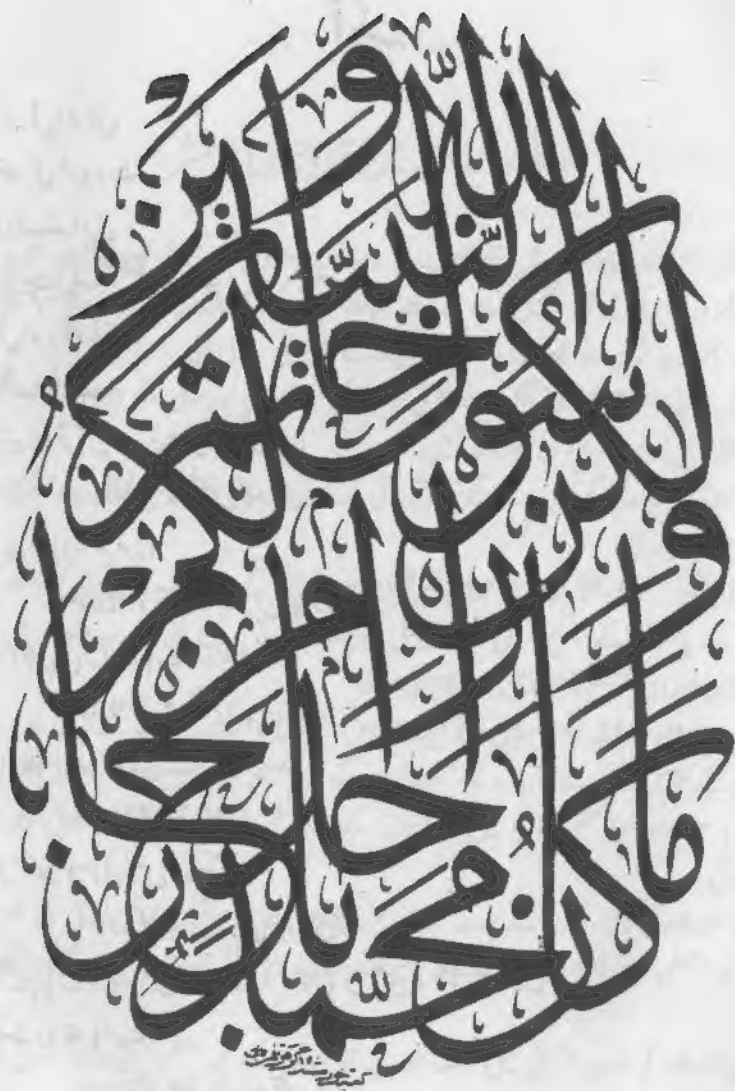 ما كان محمد ابا احد من رجالكم
ولكن رسول الله وخاتم النبيين